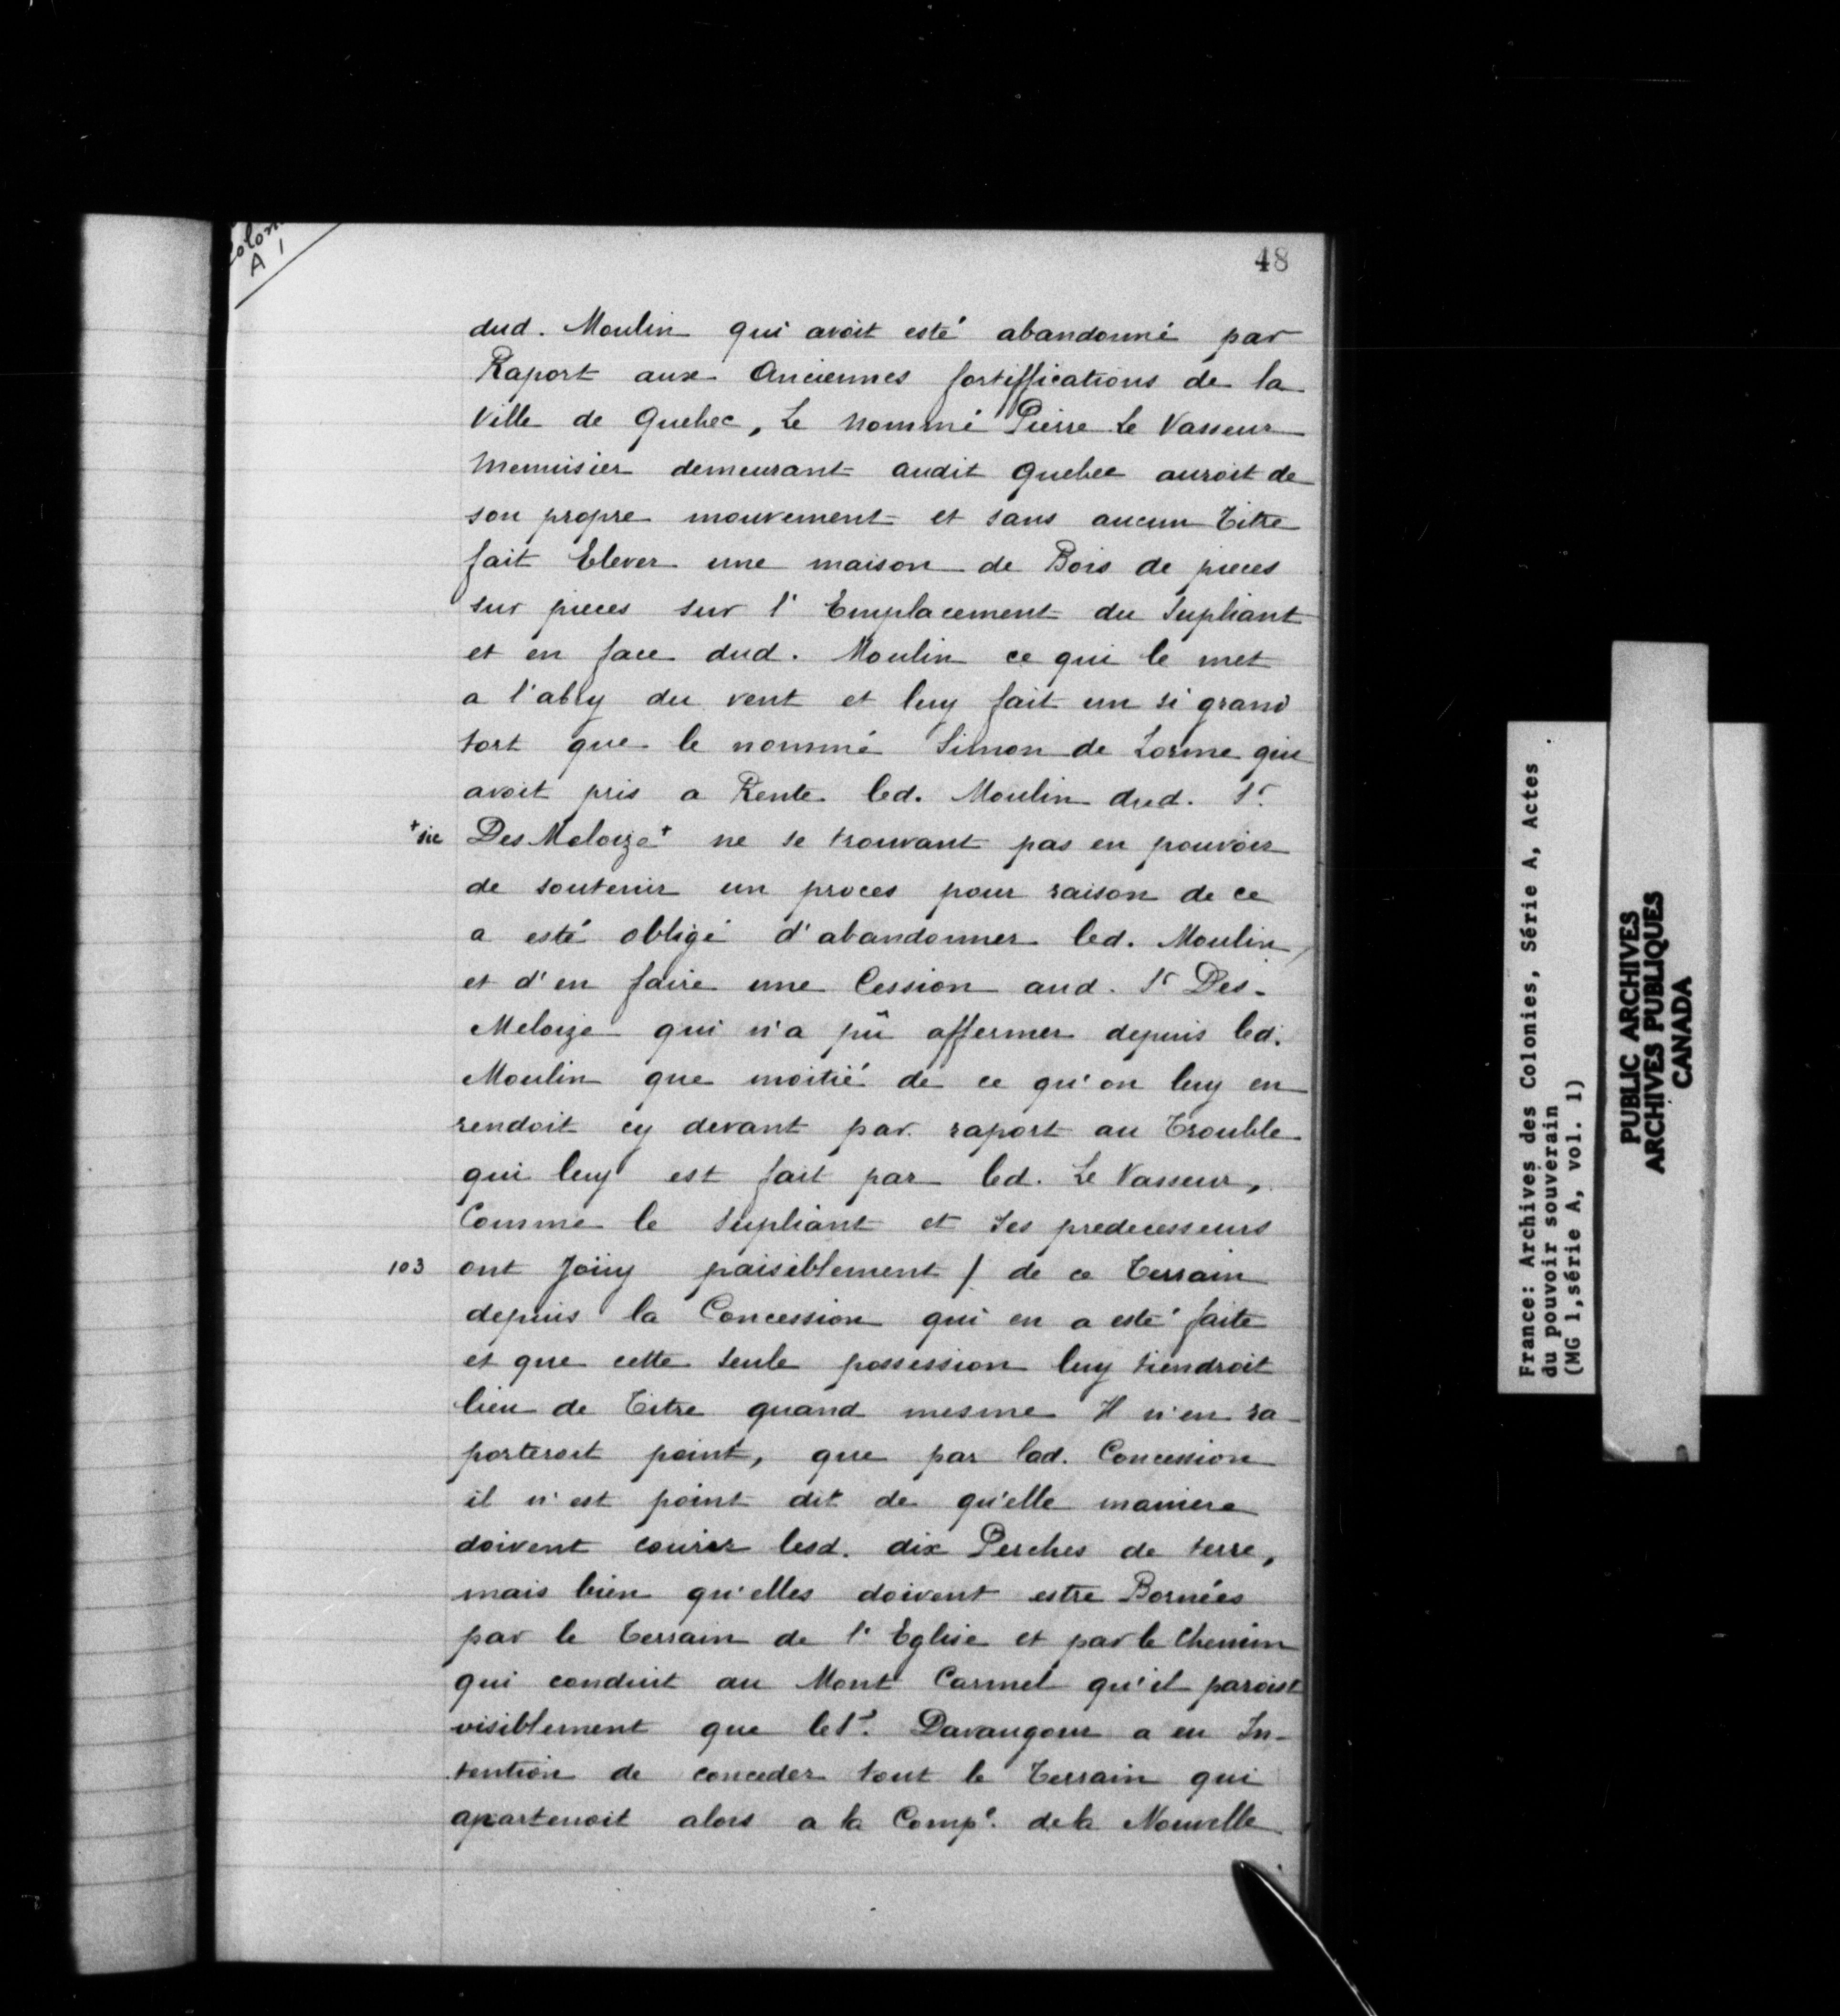 Colon
A 1
48
dud. Moulin qui avoit esté abandonné par
Raport aux Anciennes fortiffications de la
Ville de Quebec, Le nommé Pierre Le Vasseur
Menuisier demeurant audit Quebec auroit de
son propre mouvement et sans aucun Titre
fait Elever une maison de Bois de pieces
sur pieces sur l'Emplacement du Supliant
et en face dud. Moulin ce qui le met
a l'abry du vent et luy fait un si grand
tort que le nommé Simon de Lorme qui
avoit pris a Rente led. Moulin dud. Sr.
+sic Des Meloize+ ne se trouvant pas en pouvoir
de soutenir un proces pour raison de ce
a esté obligé d'abandonner led. Moulin,
et d'en faire une Cession aud. Sr Des-
Meloize qui n'a pû affermer depuis led.
Moulin que moitié de ce qu'on luy en
rendoit cy devant par raport au Trouble
qui luy est fait par led. Le Vasseur,
Comme le Supliant et ses predecesseurs
103 ont Joüy paisiblement / de ce Terrain
depuis la Concession qui en a esté faite
et que cette seule possession luy tiendroit
lieu de Titre quand mesme Il n'en ra
porteroit point, que par lad. Concession
il n'est point dit de qu'elle maniere
doivent courir lesd. dix Perches de terre,
mais bien qu'elles doivent estre Bornées
par le Terrain de l'Eglise et par le Chemin
qui conduit au Mont Carmel qu'il paroist
visiblement que le Sr. Davaugour a eu In-
tention de conceder tout le Terrain qui
apartenoit alors a la Compe. de la Nouvelle
France: Archives des Colonies, Série A, Actes
du pouvoir souverain
(MG 1,série A, vol. 1)
PUBLIC ARCHIVES
ARCHIVES PUBLIQUES
CANADA